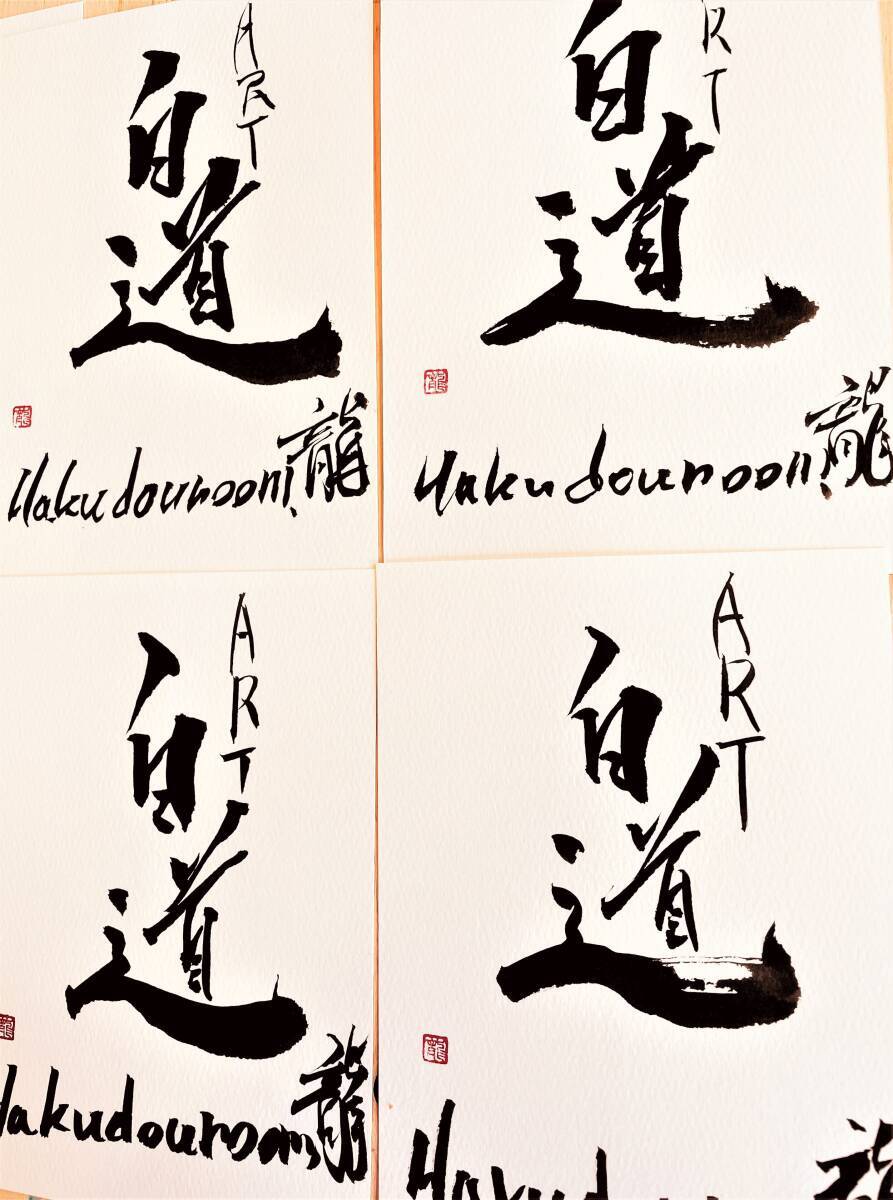 ART
白道
龍
Hakudouroom龍
RT
白道
龍
Hakudouroom龍
ART
白道
龍
Hakudouroom龍
ART
白道
龍